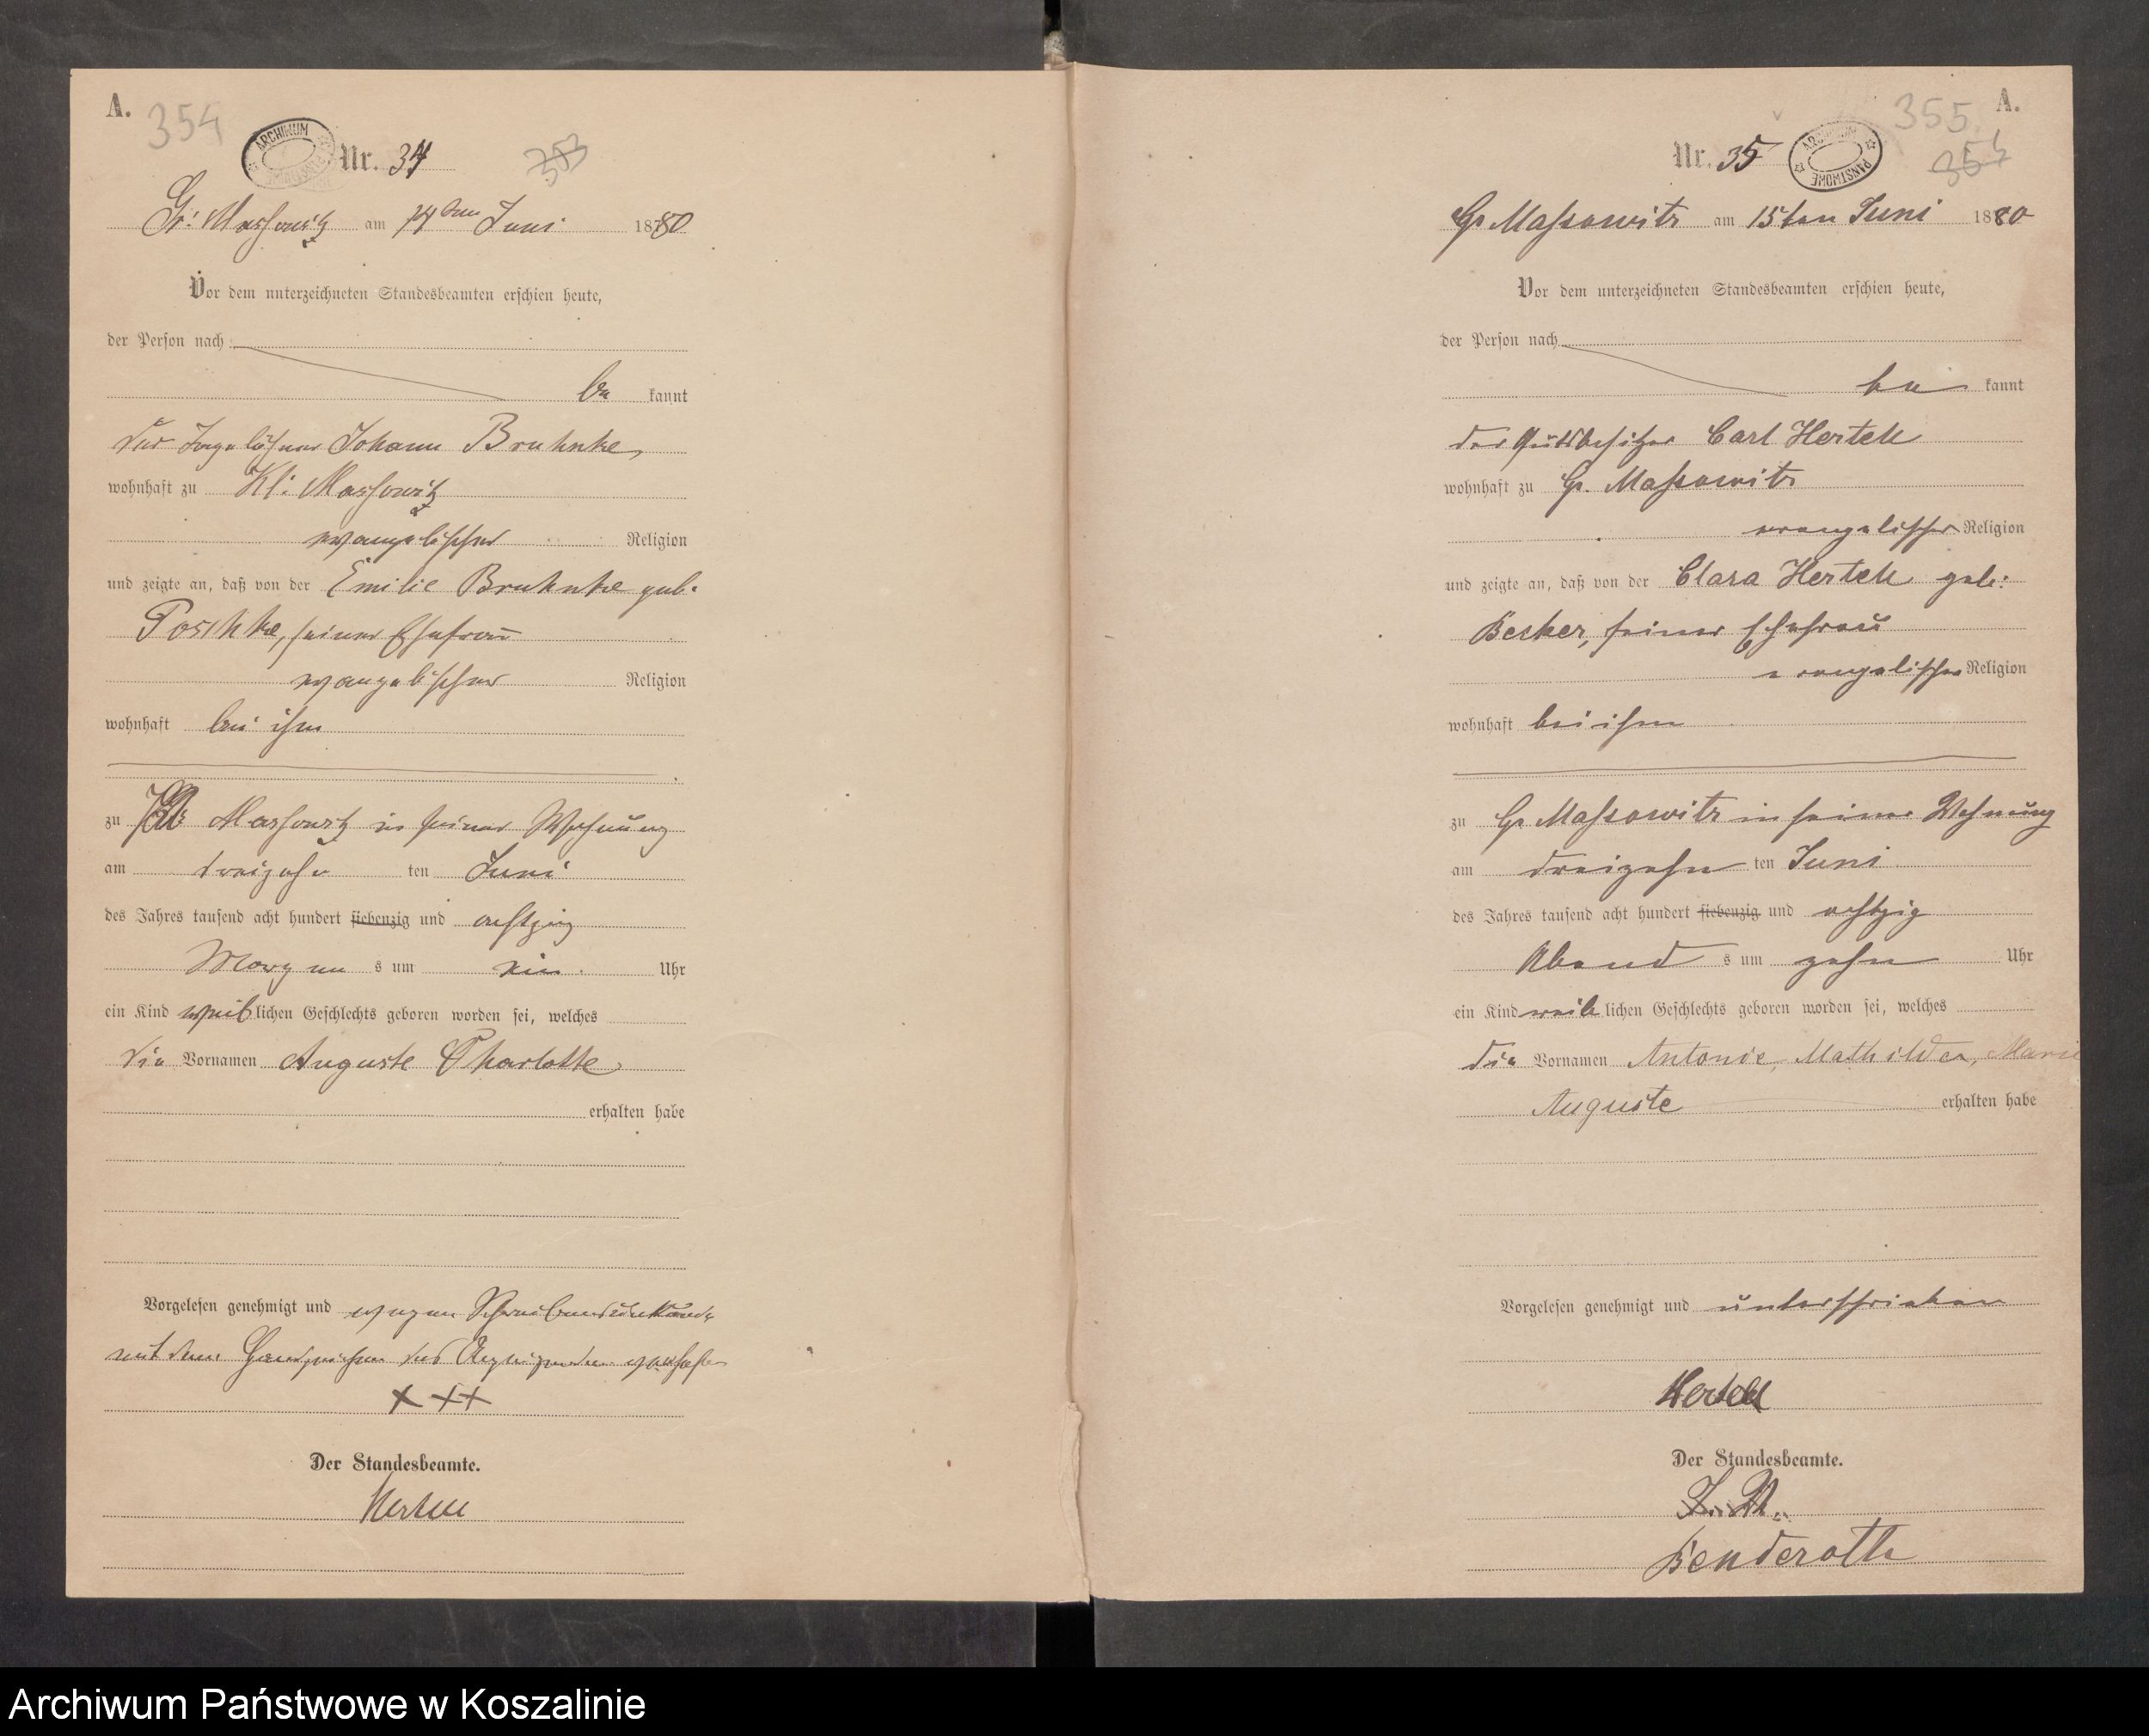 A.
354
ARCHIWUM PAŃSTWOWE
Nr. 34
353
Gr: Massowitz am 14ten Juni 1880
Vor dem unterzeichneten Standesbeamten erschien heute,
der Person nach
be kannt
der Tagelöhner Johann Bruhnke,
wohnhaft zu Kl: Massowitz
evangelischer Religion
und zeigte an, daß von der Emilie Bruhnke geb.
Poschke, seiner Ehefrau
evangelischer Religion
wohnhaft bei ihm
zu Kl: Massowitz in seiner Wohnung
am dreizehn ten Juni
des Jahres tausend acht hundert siebenzig und achtzig
Morgen s um ein Uhr
ein Kind weib lichen Geschlechts geboren worden sei, welches
die Vornamen Auguste Charlotte
erhalten habe
Vorgelesen genehmigt und wegen Schreibensunkunde
mit dem Handzeichen des Anzeigenden versehen
+ ++
Der Standesbeamte.
Hertell
A.
355
354
Nr. 35
ARCHIWUM PAŃSTWOWE
Gr Massowitz am 15ten Juni 1880
Vor dem unterzeichneten Standesbeamten erschien heute,
der Person nach
be kannt
der Gutsbesitzer Carl Hertell
wohnhaft zu Gr. Massowitz
evangelischer Religion
und zeigte an, daß von der Clara Hertell geb:
Becker, seiner Ehefrau
evangelischer Religion
wohnhaft bei ihm
zu Gr Massowitz in seiner Wohnung
am dreizehn ten Juni
des Jahres tausend acht hundert siebenzig und achtzig
Abend s um zehn Uhr
ein Kind weib lichen Geschlechts geboren worden sei, welches
die Vornamen Antonie, Mathilde, Marie
Auguste erhalten habe
Vorgelesen genehmigt und unterschrieben
Hertell
Der Standesbeamte.
Benderoth
Archiwum Państwowe w Koszalinie